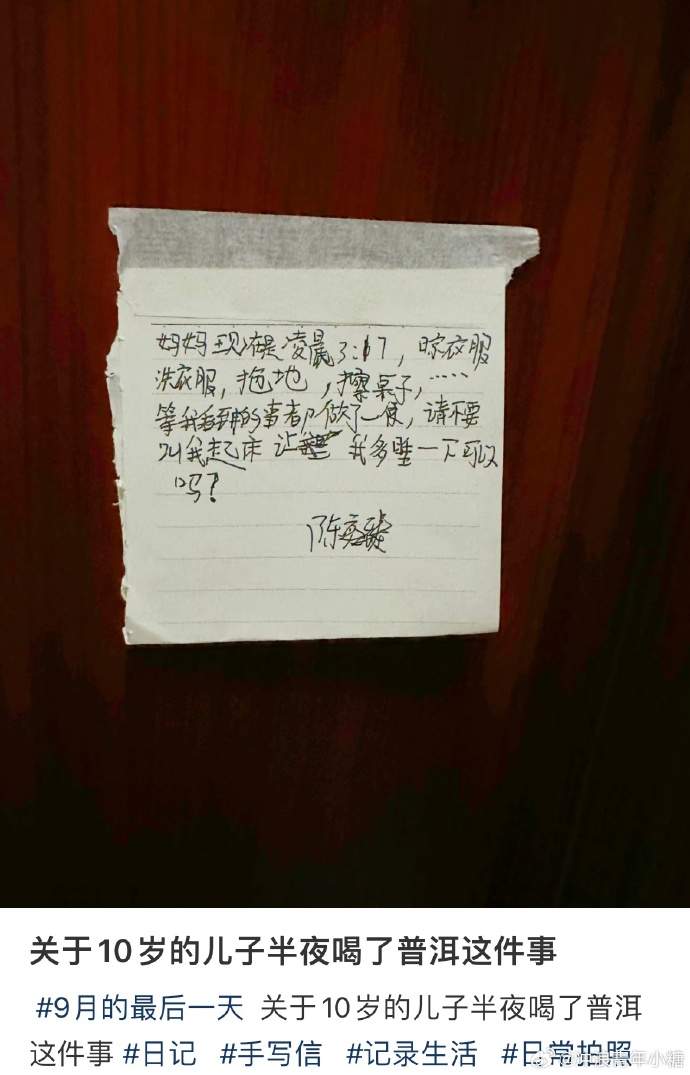 妈妈现在是凌晨3:17，晾衣服
洗衣服，拖地，擦桌子，……
等我看到的事都做了一使，请不要
叫我起床 让 我多睡一下可以
吗?
陈
关于10岁的儿子半夜喝了普洱这件事
#9月的最后一天 关于10岁的儿子半夜喝了普洱
这件事 #日记 #手写信 #记录生活 #日常拍照